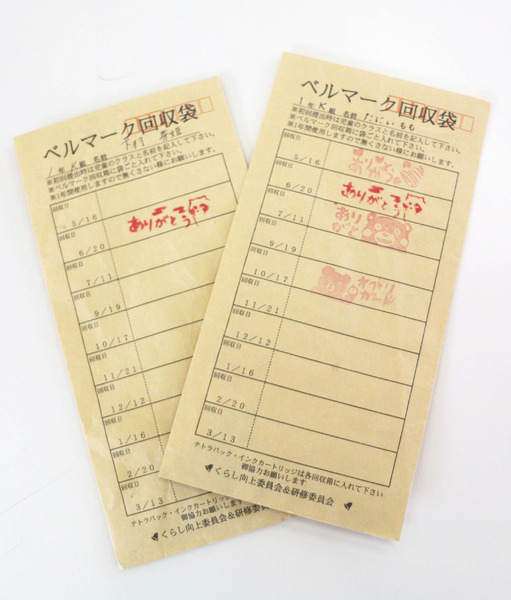 ベルマーク回収袋
1年 K組 名前 下村
※初回提出時は児童のクラスと名前を記入して下さい。
※ベルマーク回収箱に袋ごと入れて下さい。
※1年間使用しますので無くさない様にお願いします。
回収日
5/16
ありがとう
回収日
6/20
回収日
7/11
回収日
9/19
回収日
10/17
回収日
11/21
回収日
12/12
回収日
1/16
回収日
2/20
回収日
3/13
テトラパック・インクカートリッジは各回収箱に入れて下さい
御協力お願いします
くらし向上委員会&研修委員会
ベルマーク回収袋
1年 K組 名前 たにいもも
※初回提出時は児童のクラスと名前を記入して下さい。
※ベルマーク回収箱に袋ごと入れて下さい。
※1年間使用しますので無くさない様にお願いします。
回収日
5/16
ありがとう
回収日
6/20
ありがとう
回収日
7/11
ありがとう
回収日
9/19
回収日
10/17
回収日
11/21
回収日
12/12
回収日
1/16
回収日
2/20
回収日
3/13
テトラパック・インクカートリッジは各回収箱に入れて下さい
御協力お願いします
くらし向上委員会&研修委員会